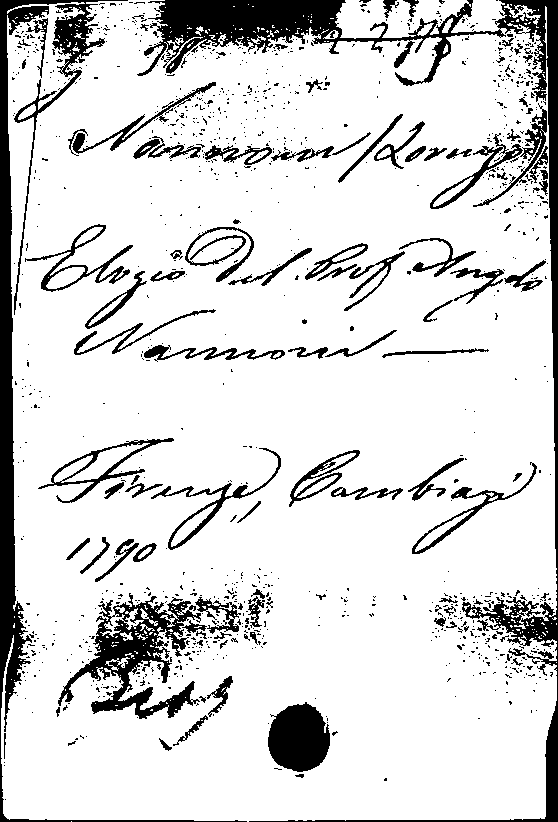 38
Nannoni (Lorenzo)
Elogio del Prof. Angelo
Nannoni —
Firenze, Cambiagi
1790